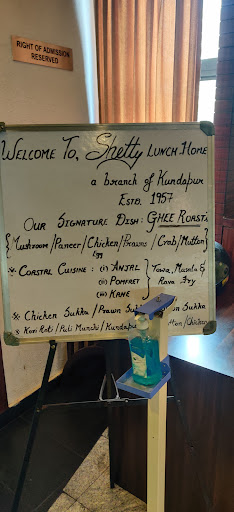 RIGHT OF ADMISSION
RESERVED
WELCOME TO, Shetty LUNCH HOME
a branch of Kundapur
ESTD. 1957
OUR SIGNATURE DISH: GHEE ROAST
{Mushroom/Paneer/Chicken/Prawns/Crab/Mutton}
Egg
* COASTAL CUISINE: (i) ANJAL
(ii) POMFRET
(iii) KANE
Tawa, Masala &
Rava Fry
* Chicken Sukka / Prawn Sukka
* Kori Roti / Puli Munchi / Kundapur